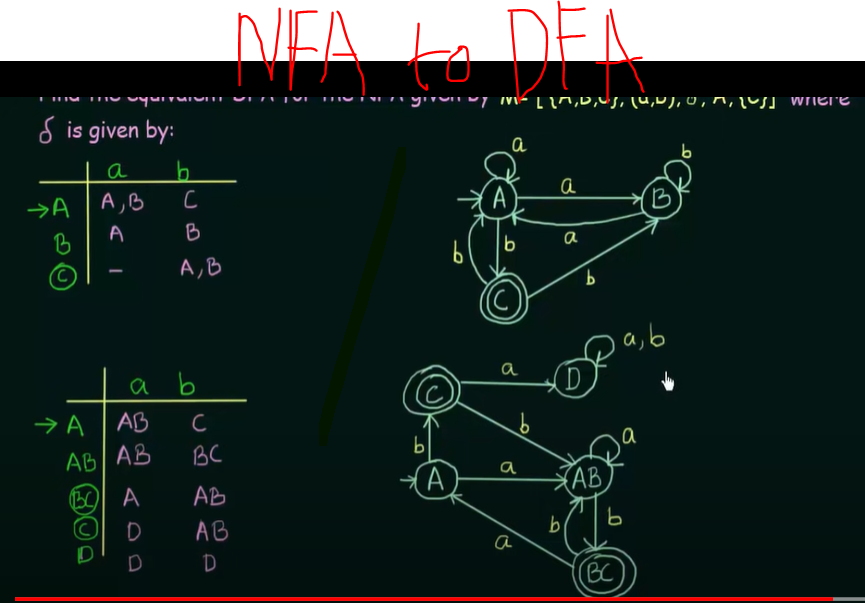 NFA to DFA
Find the equivalent DFA for the NFA given by M= [{A,B,C}, (a,b), δ, A, {C}] where
δ is given by:
a b
→A A,B C
B A B
C – A,B
a
b
A
a
B
b
b
a
C
b
a b
→A AB C
AB AB BC
BC A AB
C D AB
D D D
a,b
C
a
D
b
b
a
A
a
AB
b
b
a
BC